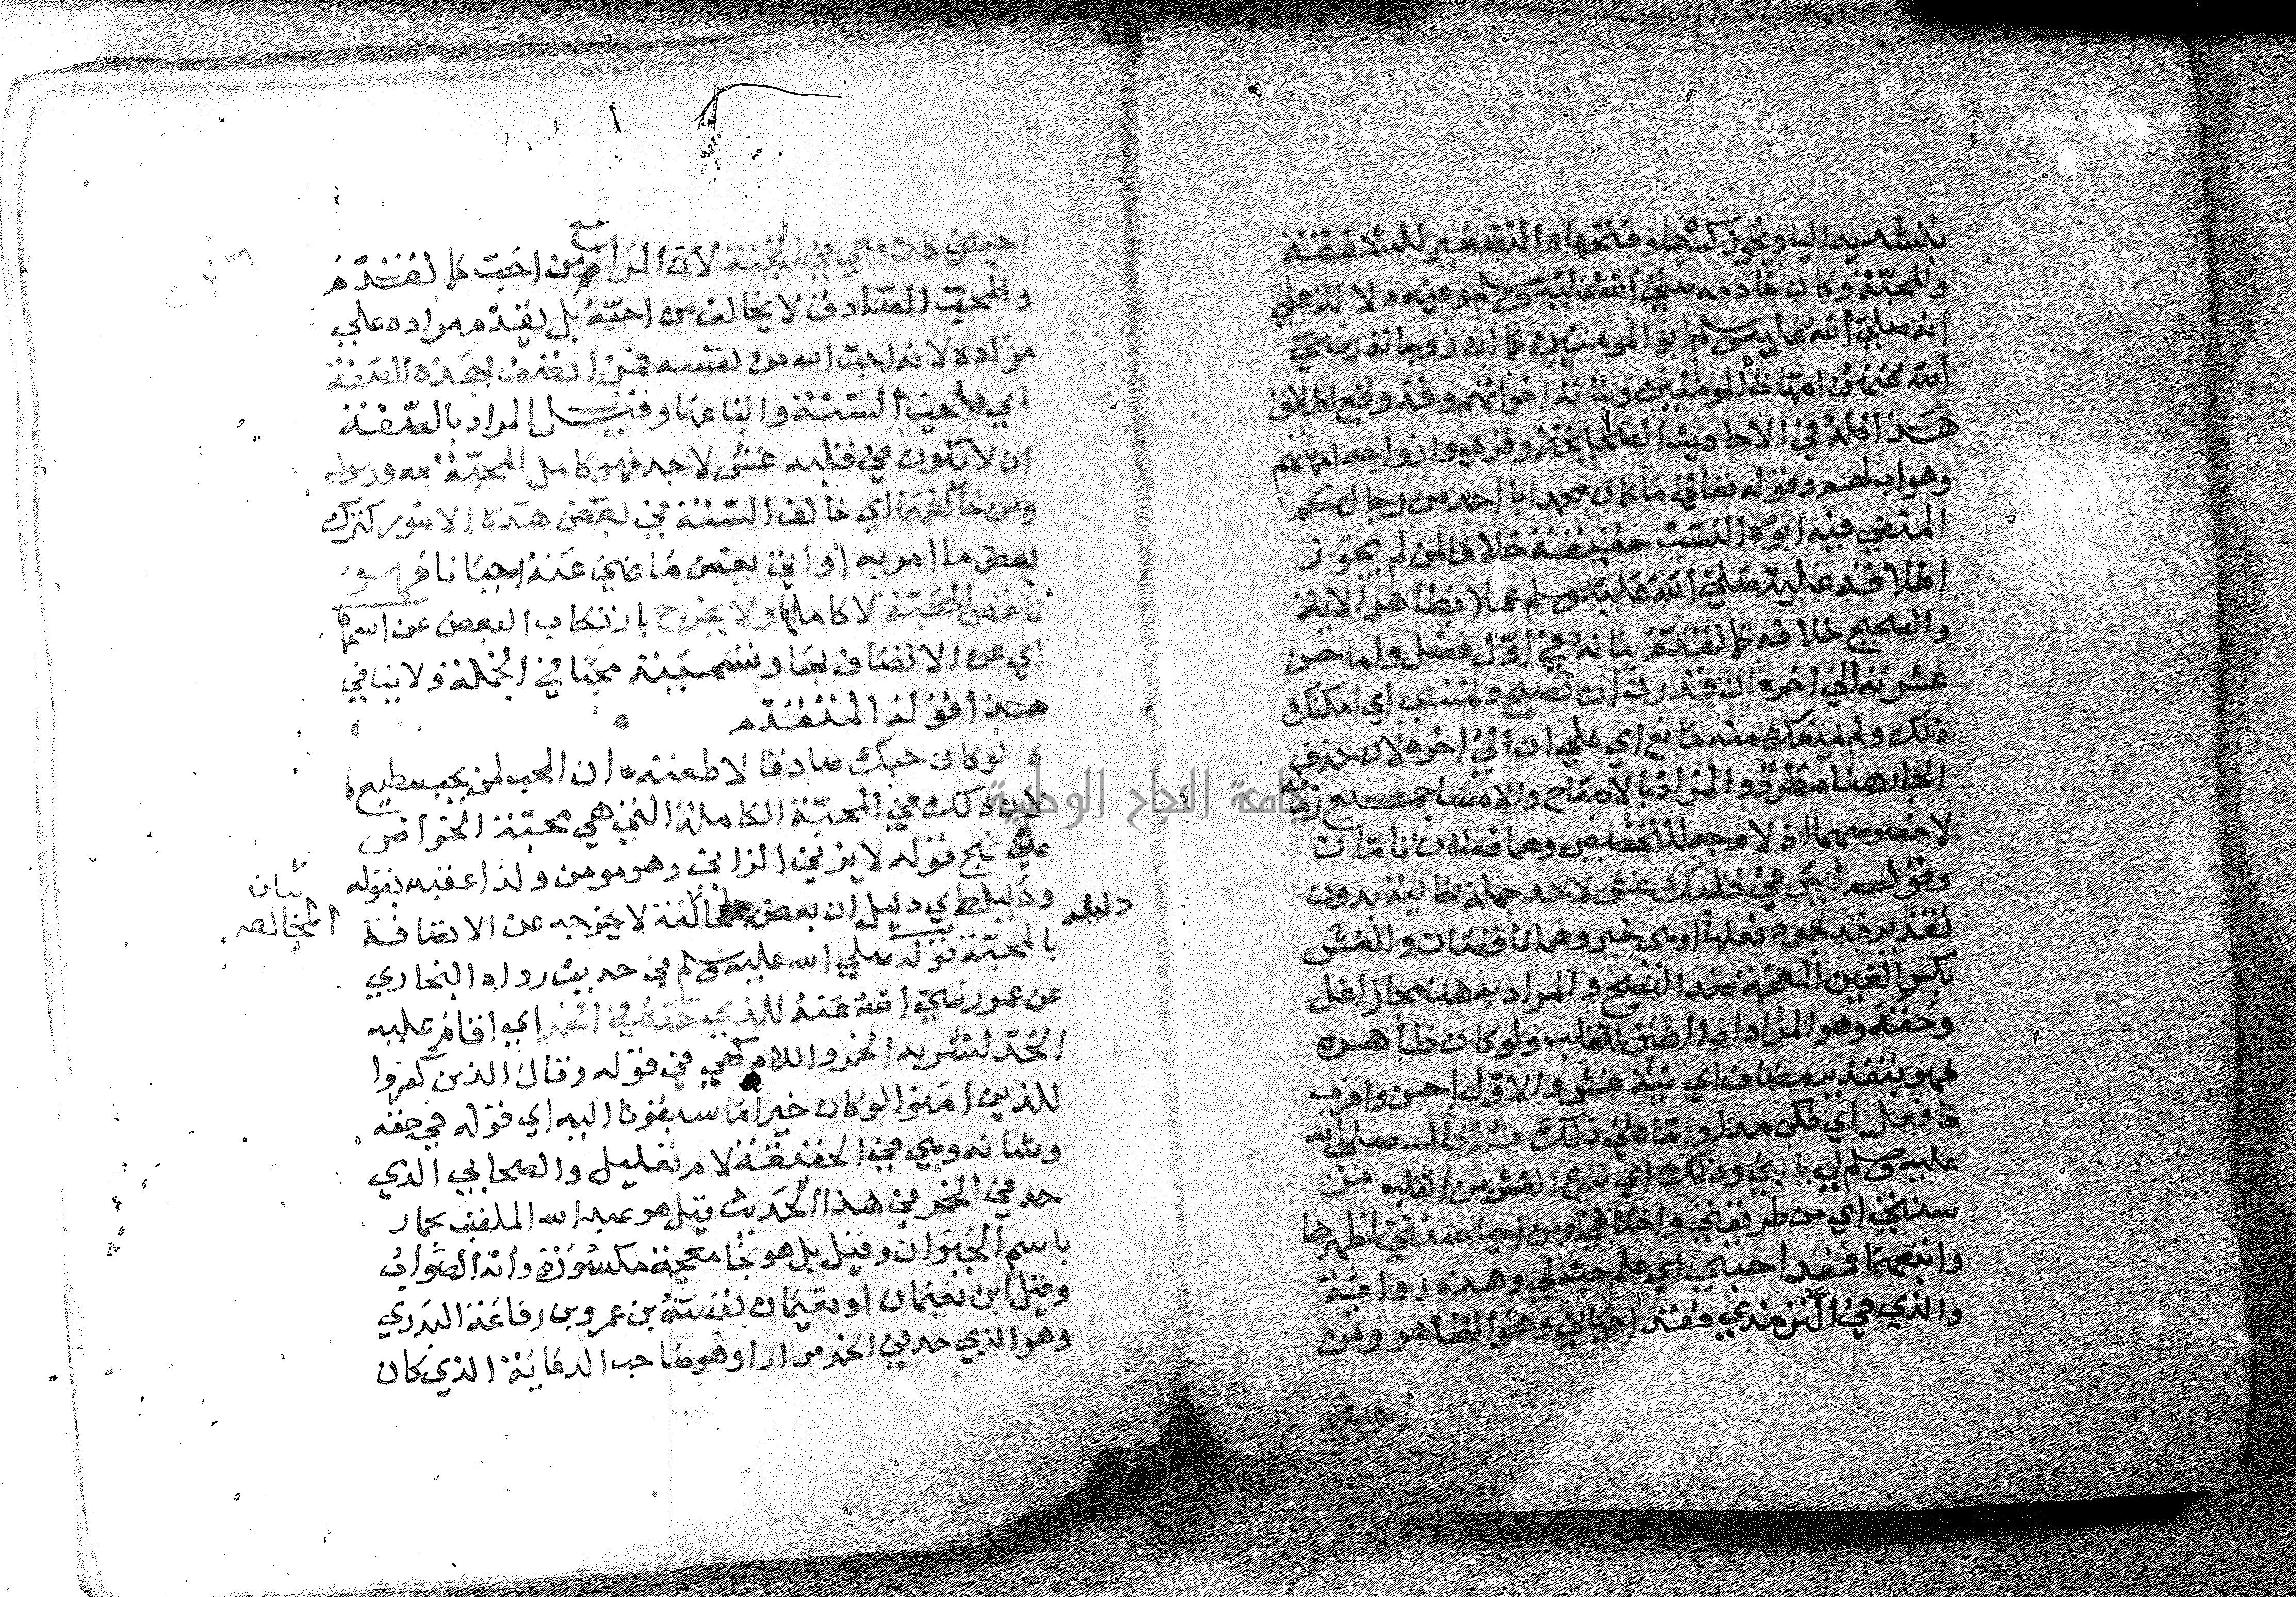 بتشديد اليا ويجوز كسرها وفتحها والتصغير للشفقة
والمحبة وكان خادمه صلى الله عليه وسلم وفيه دلالة علي
انه صلى الله عليه وسلم ابو المومنين كما ان زوجاته رضي
الله عنهن امهات المومنين وبناته اخواتهم وقد وقع اطلاق
هذا كله في الاحاديث الصحيحة وقري وازواجه امهاتهم
وهو اب لهم وقوله تعالي ما كان محمد ابا احد من رجالكم
المنفي فيه ابوه النسب حقيقة خلافا لمن لم يجوز
اطلاقه عليه صلى الله عليه وسلم عملا بظاهر الاية
والصحيح خلافه كما تقدم بيانه في اول فصل واما حسن
عشرته الي اخره ان قدرت ان تصبح وتمسي اي امكنك
ذلك ولم يمنعك منه مانع اي علي ان الي اخره لان حذف
الجار هنا مطرد والمراد بالاصباح والامسا جميع زمانه
لا خصوصهما اذ لا وجه للتخصيص وهما فعلان تامان
وقوله ليس في قلبك غش لاحد جملة حالية بدون
تقدير قد لجمود فعلها او هي خبر وهما ناقصان والغش
بكسر الغين المعجمة ضد النصح والمراد به هنا مجازا غل
وحقد وهو المراد اذ الضيق للقلب ولو كان ظاهره
فهو بتقدير مضاف اي نية غش والاول احسن واقرب
فافعل اي فكن مداوما علي ذلك ثم قال صلى الله
عليه وسلم لي يا بني وذلك اي نزع الغش من القلب من
سنتي اي من طريقتي واخلاقي ومن احيا سنتي اظهرها
واتبعها فقد احبني اي علم حبه لي وهذه رواية
والذي في الترمذي فقد احياني وهو الظاهر ومن
احبني
احبني كان معي في الجنة لان المرء مع من احب كما تقدم
والمحب الصادق لا يخالف من احبه بل يقدم مراده علي
مراده لانه احب اليه من نفسه فمن اتصف بهذه الصفة
اي باحيا السنة واتباعها وقيل المراد بالصفة
ان لا يكون في قلبه غش لاحد فهو كامل المحبة لله ورسوله
ومن خالفها اي خالف السنة في بعض هذه الامور كترك
بعض ما امر به او اتي بعض ما نهي عنه احيانا فهو
ناقص المحبة لا كاملها ولا يخرج بارتكاب البعض عن اسمها
اي عن الاتصاف بها وتسميته محبا في الجملة ولا ينافي
هذا قوله المتقدم
لو كان حبك صادقا لاطعته ان المحب لمن يحب مطيع
لان ذلك في المحبة الكاملة التي هي محبة الخواص
علي نهج قوله لا يزني الزاني وهو مومن ولذا عقبه بقوله
ودليله اي دليل ان بعض المخالفة لا يخرجه عن الاتصاف
دليله
بيان
المخالفه
بالمحبة قوله صلى الله عليه وسلم في حديث رواه البخاري
عن عمر رضي الله عنه للذي حده في الخمر اي اقام عليه
الحد لشربه الخمر واللام كهي في قوله وقال الذين كفروا
للذين امنوا لو كان خيرا ما سبقونا اليه اي قوله في حقه
وشانه وهي في الحقيقة لام تعليل والصحابي الذي
حد في الخمر في هذا الحديث قيل هو عبد الله الملقب بحمار
باسم الحيوان وقيل بل هو بخا معجمة مكسورة وانه الصواب
وقيل ابن نعيمان او نعيمان نفسه بن عمرو بن رفاعة البدري
وهو الذي حد في الخمر مرارا وهو صاحب الدعابة الذي كان
جامعة النجاح الوطنية